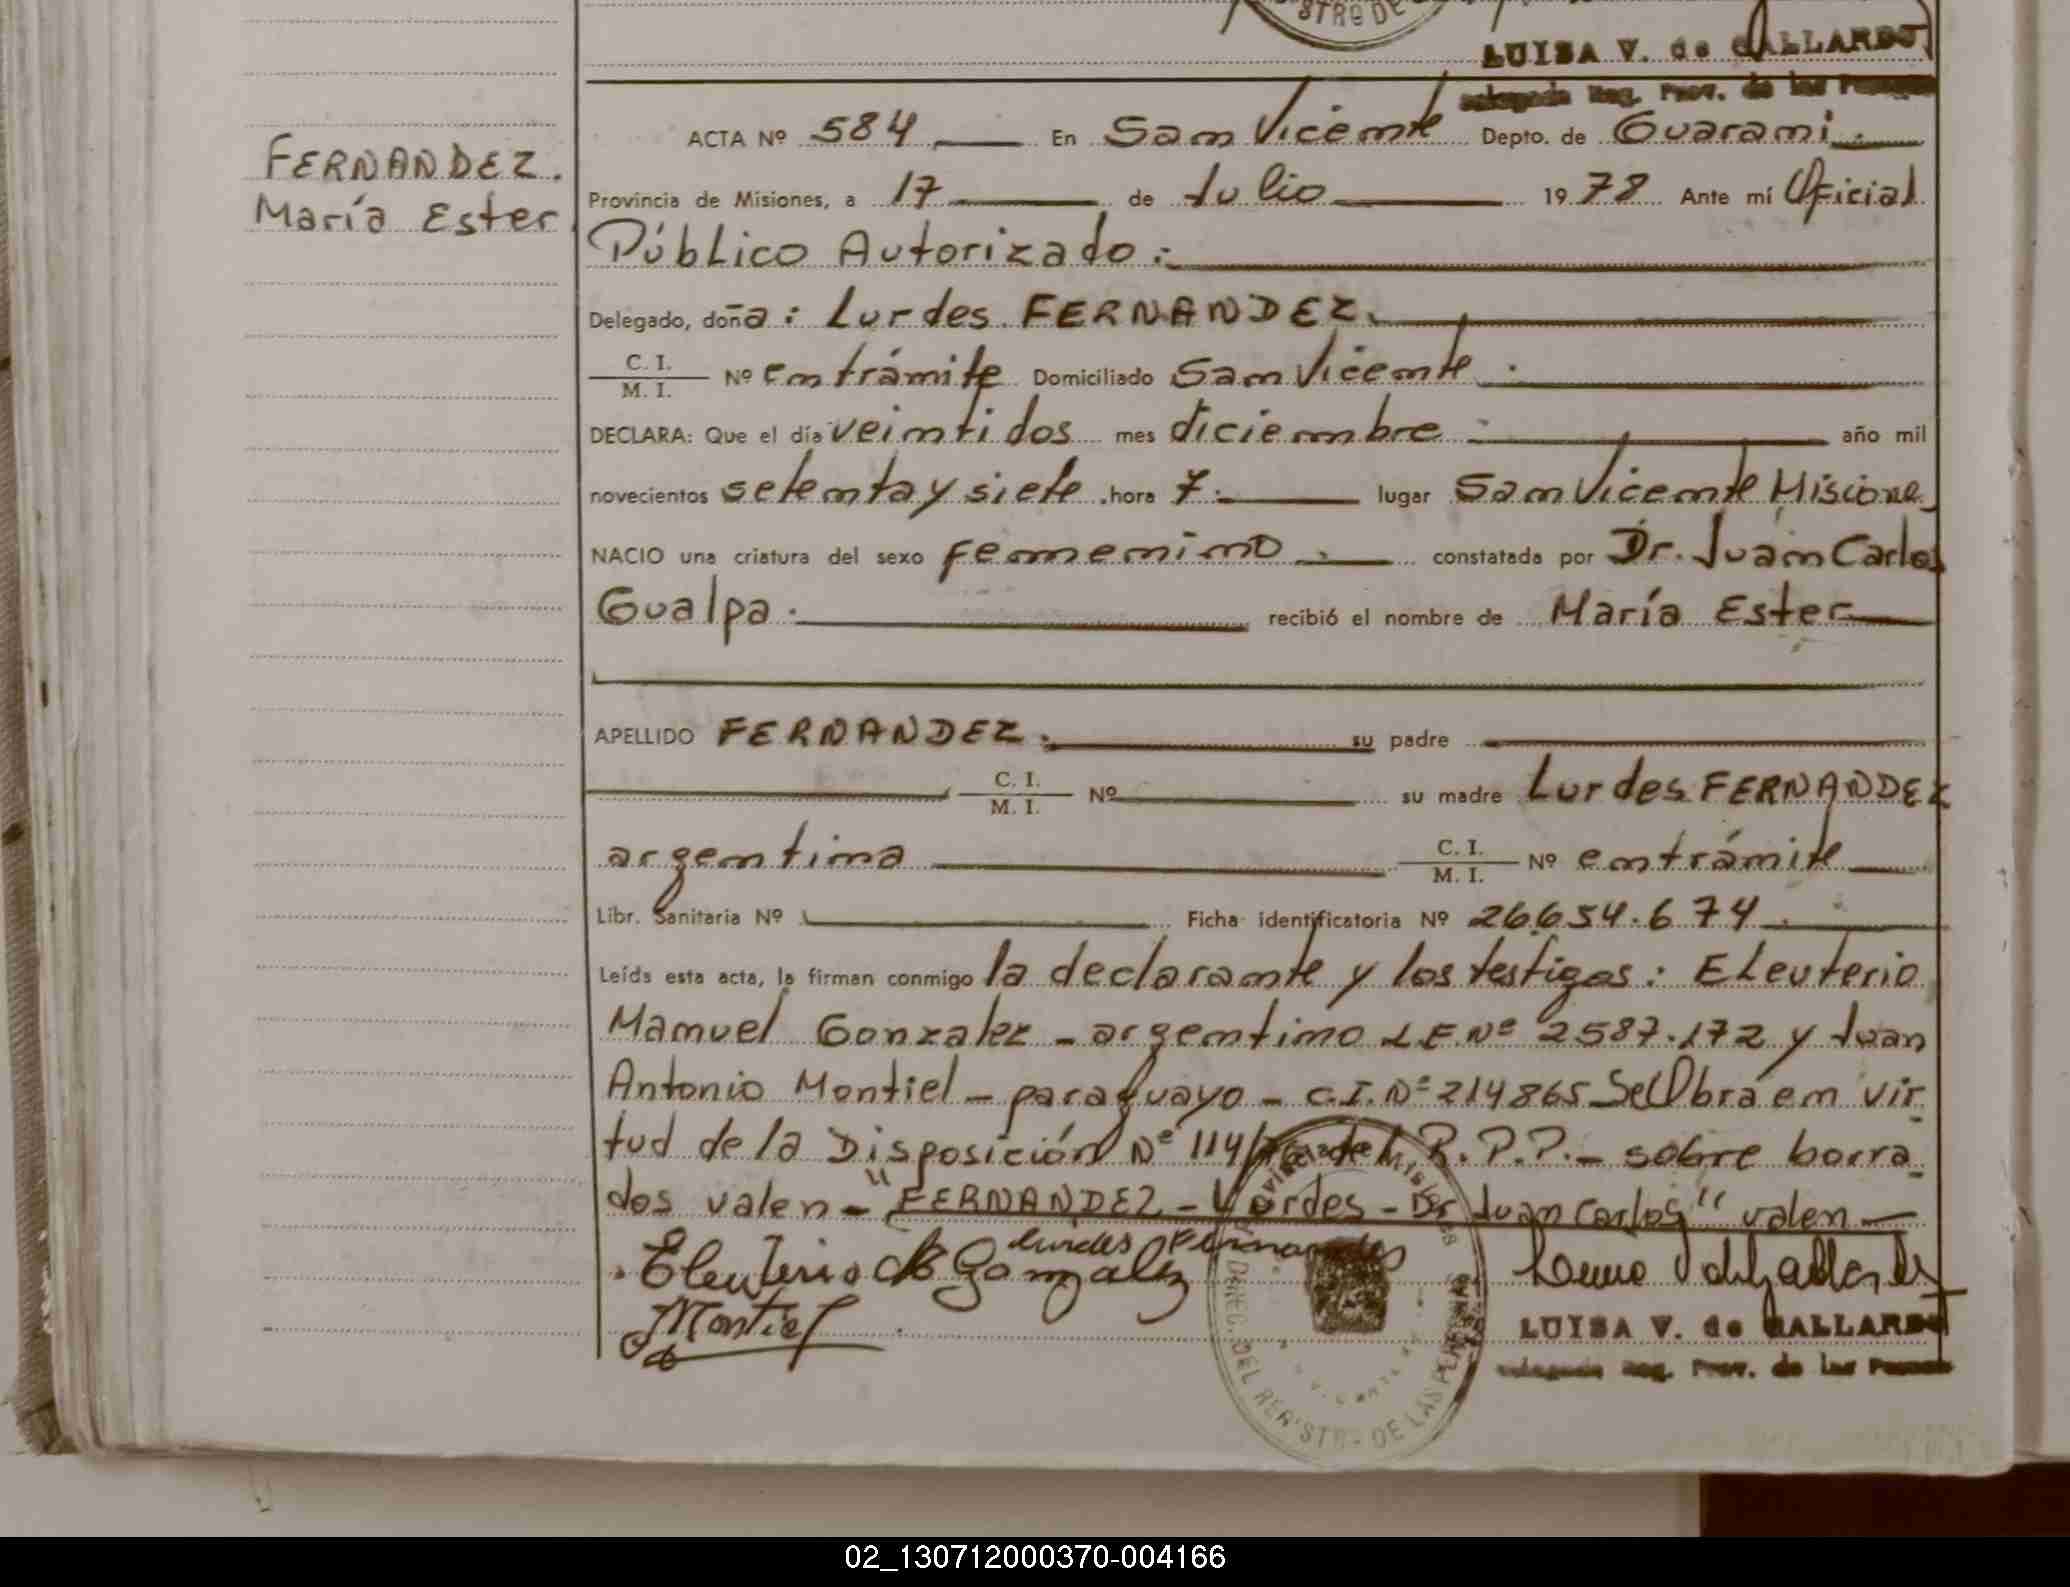 STRO DE
LUISA V. de GALLARDO
Delegada Reg. Prov. de las Personas
FERNANDEZ.
María Ester
ACTA Nº 584 En San Vicente Depto. de Guaraní.
Provincia de Misiones, a 17 de Julio 1978 Ante mí Oficial
Público Autorizado:
Delegado, doña: Lurdes FERNANDEZ.
C. I.
M. I. Nº en trámite Domiciliado San Vicente.
DECLARA: Que el día veintidos mes diciembre año mil
novecientos setenta y siete hora 7. lugar San Vicente Misiones
NACIO una criatura del sexo femenino. constatada por Dr. Juan Carlos
Gualpa. recibió el nombre de María Ester
APELLIDO FERNANDEZ. su padre
C. I.
M. I. Nº su madre Lurdes FERNANDEZ
argentina C. I.
M. I. Nº en trámite
Libr. Sanitaria Nº Ficha identificatoria Nº 26.654.674.
Leída esta acta, la firman conmigo la declarante y los testigos: Eleuterio
Manuel Gonzalez - argentino L.E.Nº 2587.172 y Juan
Antonio Montiel - paraguayo - C.I.Nº 214865 Se Obra en vir
tud de la Disposición Nº 114/ del R.P.P. - sobre borra
dos valen - "FERNANDEZ - Lurdes - Dr Juan Carlos" valen -
Lurdes Fernandez
Eleuterio M Gonzalez
Montiel
LUISA V. de GALLARDO
Delegada Reg. Prov. de las Personas
Provincia de Misiones
DIREC. DEL REGISTR. DE LAS PERSONAS
02_130712000370-004166